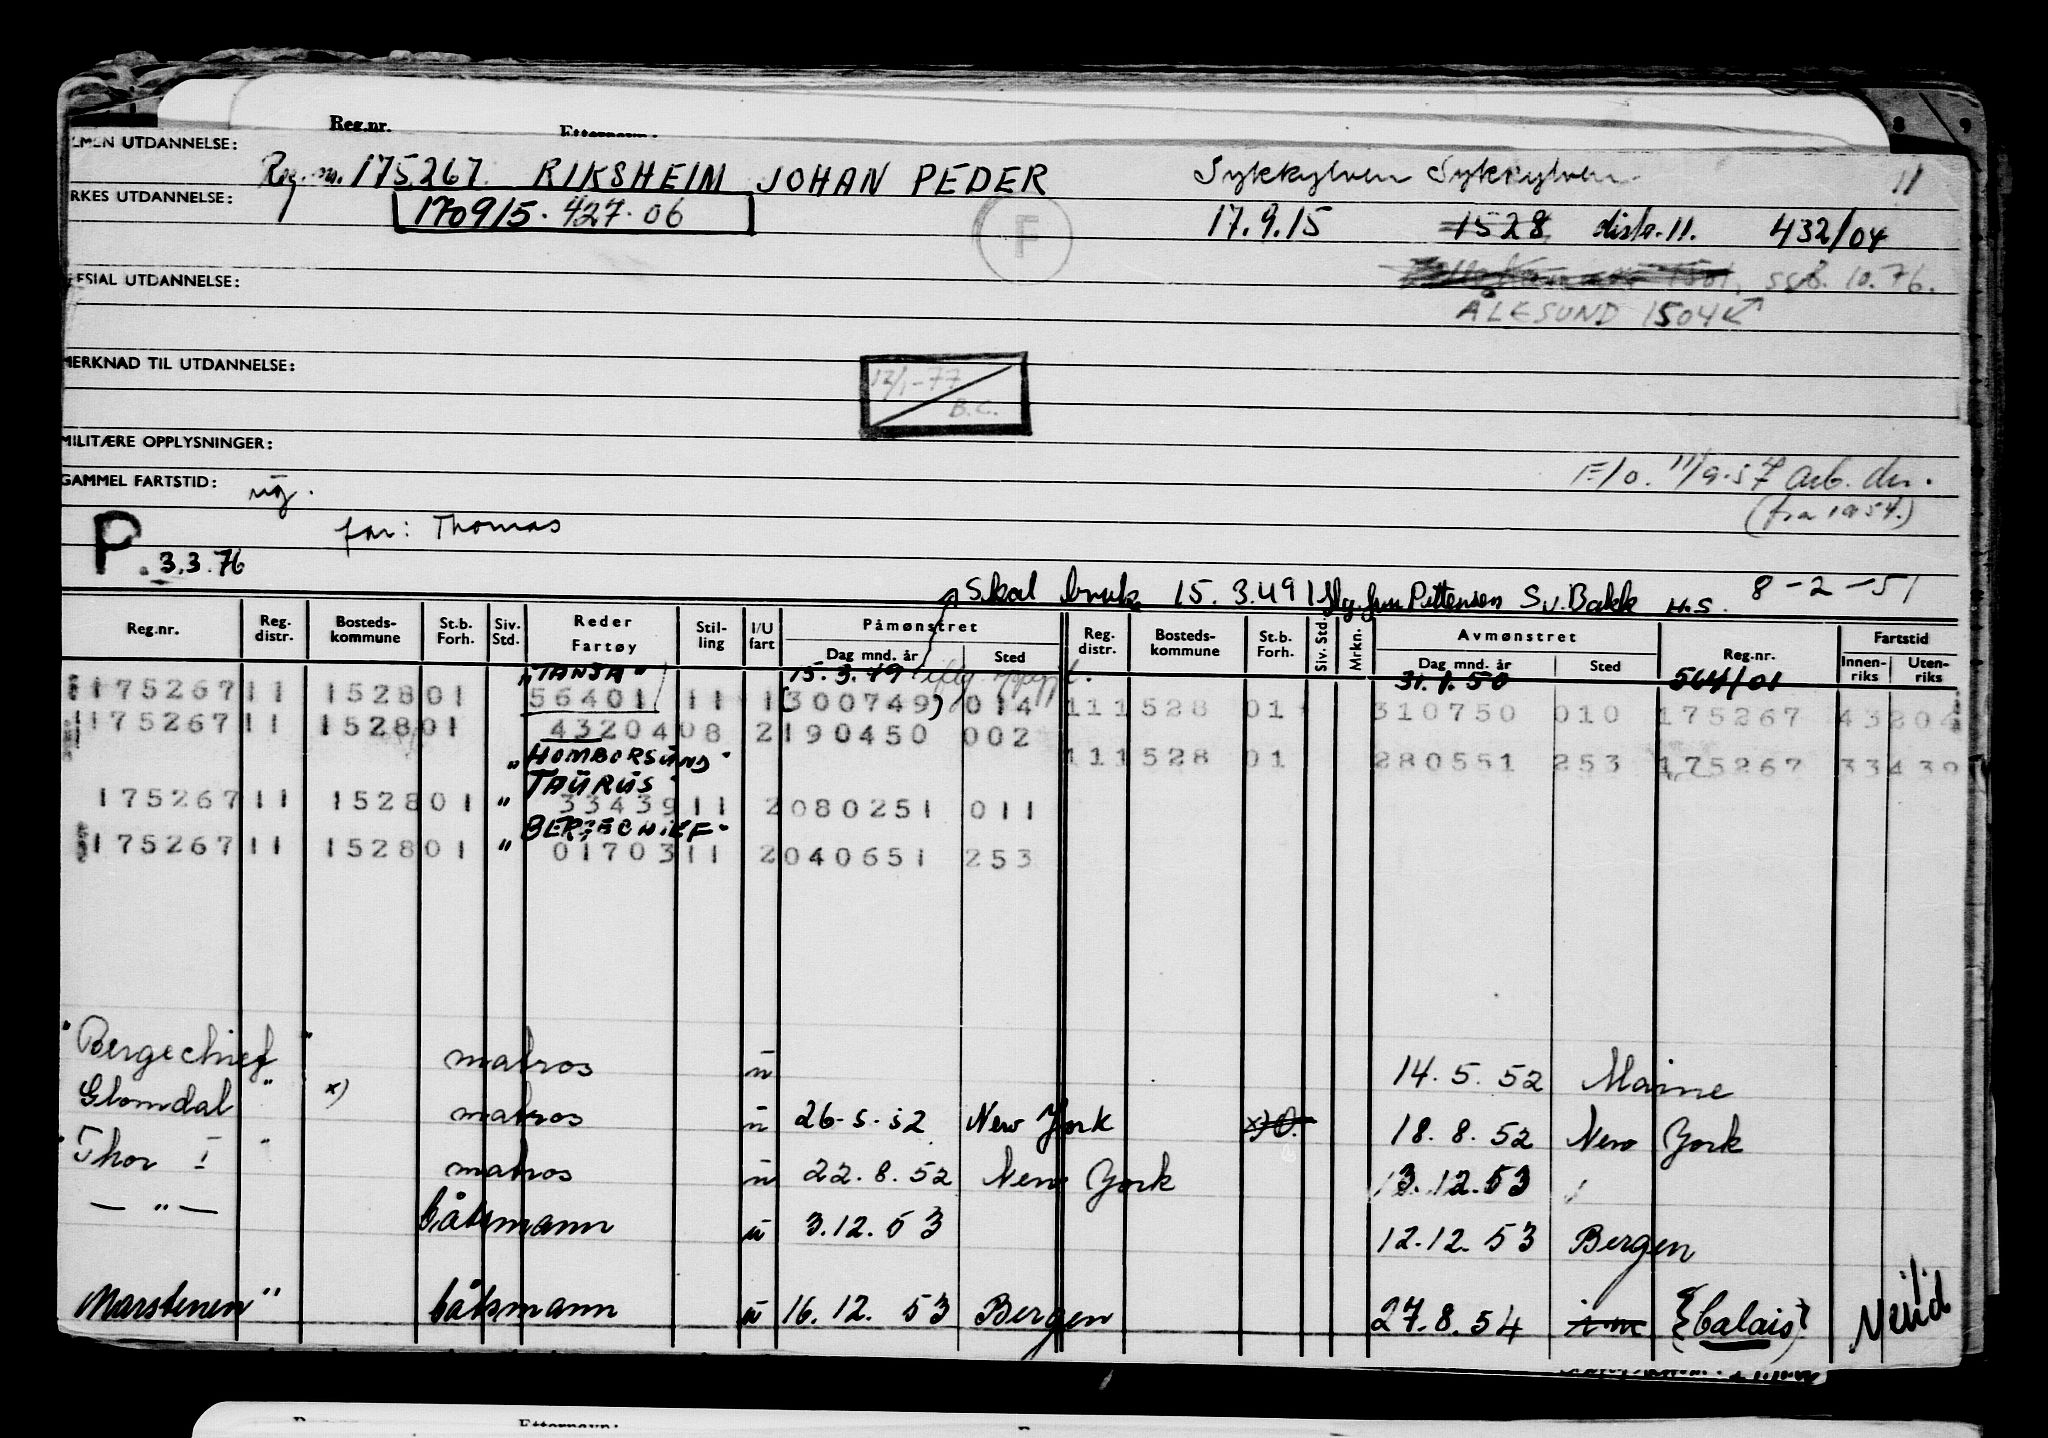 Reg.nr.
8 9
UTDANNELSE:
Reg. nr. 175.267. RIKSHEIM JOHAN PEDER Sykkylven Sykkylven 11
RKES UTDANNELSE: 170915.427.06 17.9.15 1528 distr. 11. 432/04
F
ESIAL UTDANNELSE: ssb. 10.76.
ÅLESUND 1504
MERKNAD TIL UTDANNELSE:
12/1-77
B.C.
MILITÆRE OPPLYSNINGER:
GAMMEL FARTSTID: F/o. 11/9-57 arb.
(fra 1954.)
far: Thomas
P. 3.3.76
Skal bruk 15.3.49 Pettersen Sv. Bakk H.S. 8-2-51
Reg.nr. Reg. distr. Bosteds-kommune St.b. Forh. Siv. Std. Reder Fartøy Stil-ling I/U fart Påmønstret Dag mnd. år Sted Reg. distr. Bosteds-kommune St.b. Forh. Siv. Std. Mrkn. Avmønstret Dag mnd. år Sted Reg.nr. Fartstid Innen-riks Uten-riks
"TANJA" 15.3.49 31.1.50 564/01
175267 11 1528 01 56401 11 1 (300749) 014 11 1528 01 310750 010 175267 43204
175267 11 1528 01 43204 08 2 190450 002
"HOMBORSUND" 11 1528 01 280551 253 175267 33439
"TAURUS"
175267 11 1528 01 33439 11 2 080251 011
"BERGECHIEF"
175267 11 1528 01 01703 11 2 040651 253
"Bergechief" matros u 14.5.52 Maine
Glomdal" x) matros u 26-5-52 New York 18.8.52 New York
"Thor I" matros u 22.8.52 New York 13.12.53
— " — båtsmann u 3.12.53 12.12.53 Bergen
Marstenen" båtsmann u 16.12.53 Bergen 27.8.54 {Calais}
Etternavn: